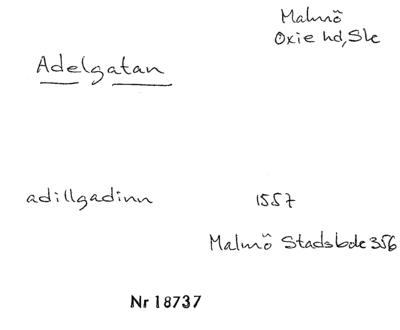 Malmö
Oxie hd, Sk
Adelgatan
adillgadinn 1557
Malmö Stadsbok 356
Nr 18737